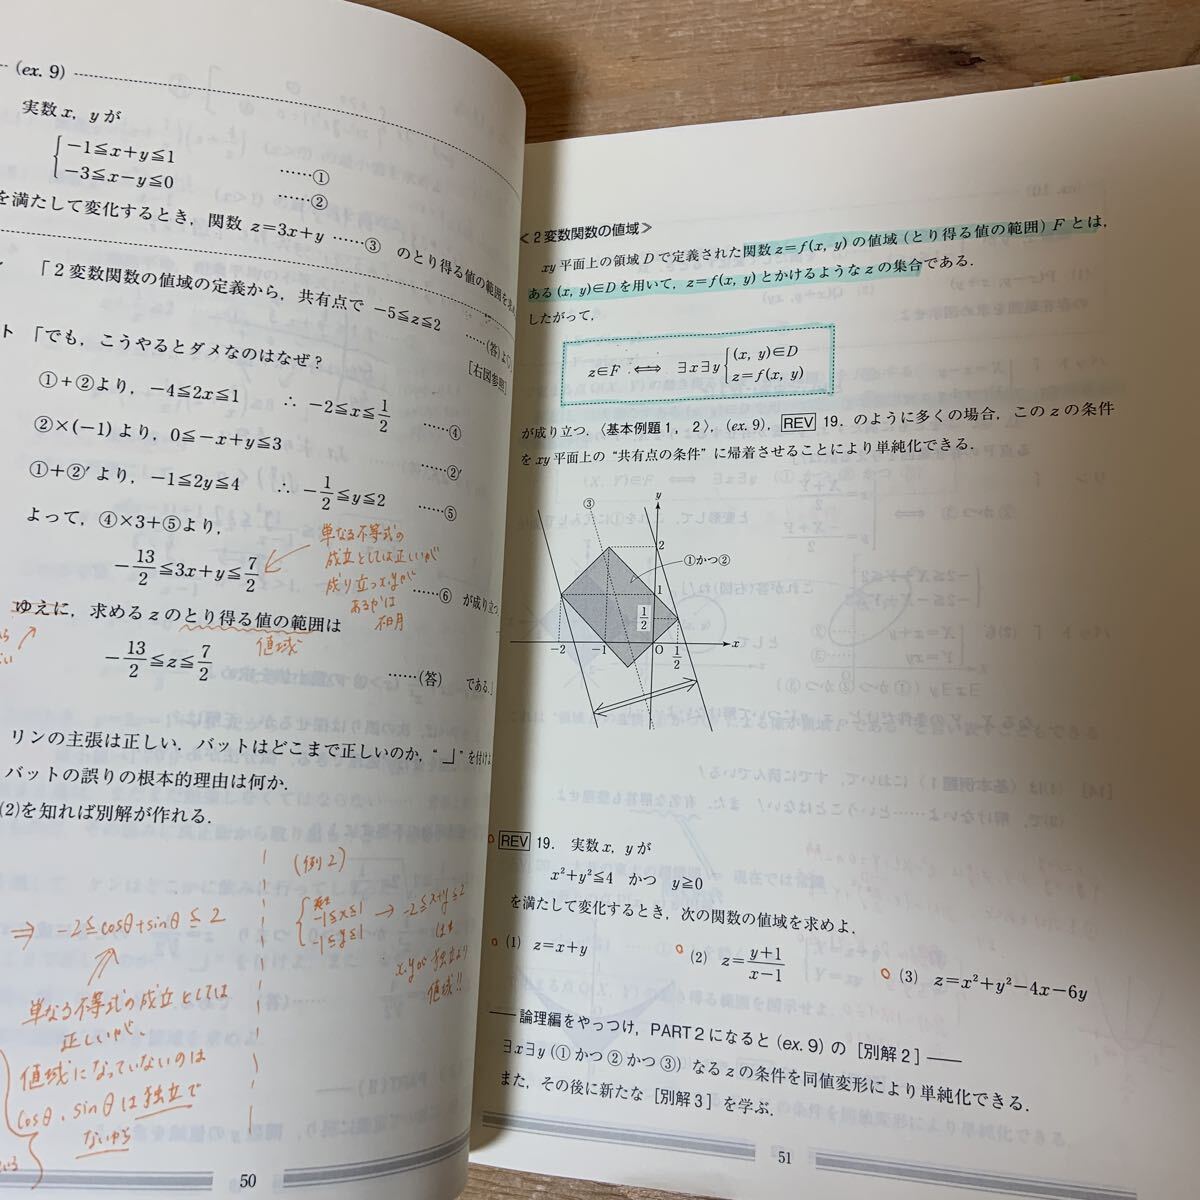 (ex. 9)
実数 x, y が
−1≦x+y≦1 ……①
−3≦x−y≦0 ……②
を満たして変化するとき，関数 z=3x+y ……③ のとり得る値の範囲を求
「2変数関数の値域の定義から，共有点で −5≦z≦2 ……(答)より,
[右図参照]
ト 「でも，こうやるとダメなのはなぜ？
①＋②より，−4≦2x≦1 ∴ −2≦x≦1/2 ……④
②×(−1)より，0≦−x+y≦3 ……②′
①＋②′より，−1≦2y≦4 ∴ −1/2≦y≦2 ……⑤
よって，④×3＋⑤より，
−13/2≦3x+y≦7/2 ……⑥ が成り立つ
単なる不等式の
成立としては正しいが
成り立つx,yが
あるかは
不明
ゆえに，求める z のとり得る値の範囲は
値域
−13/2≦z≦7/2 ……(答) である.」
リンの主張は正しい．バットはどこまで正しいのか，“ 」”を付けよ
バットの誤りの根本的理由は何か．
(2)を知れば別解が作れる．
⇒ −2≦cosθ+sinθ≦2
単なる不等式の成立としては
正しいが、
値域になっていないのは
cosθ、sinθは独立で
ないから
(例2)
−1≦x≦1
−1≦y≦1
→ −2≦x+y≦2
は
x,yが独立より
値域!!
50
＜2変数関数の値域＞
xy平面上の領域Dで定義された関数 z=f(x, y) の値域（とり得る値の範囲）Fとは，
ある (x, y)∈D を用いて，z=f(x, y) とかけるような z の集合である．
したがって，
z∈F ⟺ ∃x∃y { (x, y)∈D
z=f(x, y)
が成り立つ．〈基本例題1，2〉，(ex. 9)，REV 19．のように多くの場合，この z の条件
を xy平面上の“共有点の条件”に帰着させることにより単純化できる．
③
y
2
①かつ②
1
1/2
−2
−1
O
1/2
x
REV 19． 実数 x, y が
x²+y²≦4 かつ y≧0
を満たして変化するとき，次の関数の値域を求めよ．
(1) z=x+y
(2) z=y+1/x−1
(3) z=x²+y²−4x−6y
――論理編をやっつけ，PART 2 になると (ex. 9) の［別解2］――
∃x∃y (①かつ②かつ③) なる z の条件を同値変形により単純化できる．
また，その後に新たな［別解3］を学ぶ．
51